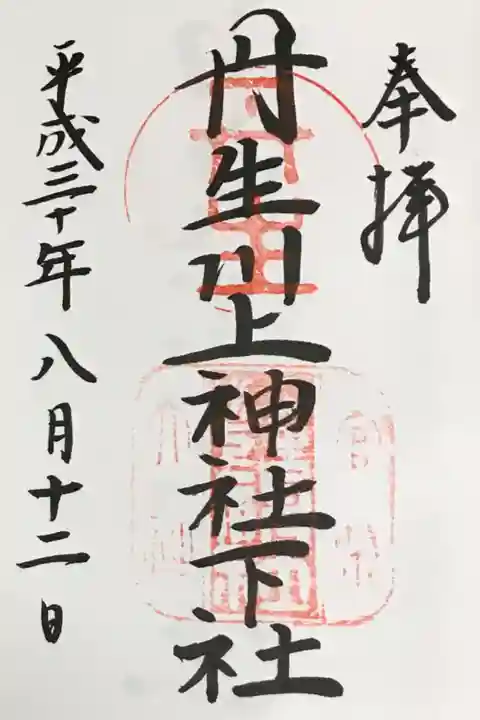 奉拝
丹生川上神社下社
平成三十年八月十二日